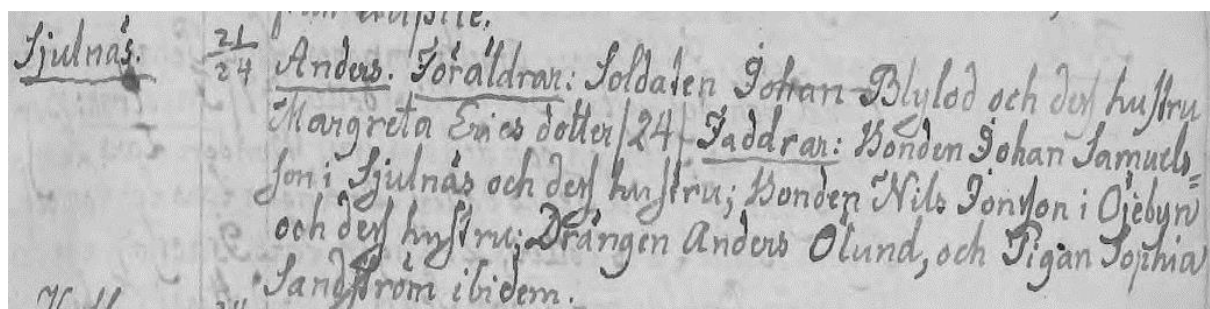 Sjulnäs. 21/24 Anders. Föräldrar: Soldaten Johan Blylod och dess hustru
Margreta Erics dotter /24/ Faddrar: Bonden Johan Samuels=
son i Sjulnäs och dess hustru; Bonden Nils Jonsson i Öjebyn
och dess hustru; Drängen Anders Ölund, och Pigan Sophia
Sandström ibidem.